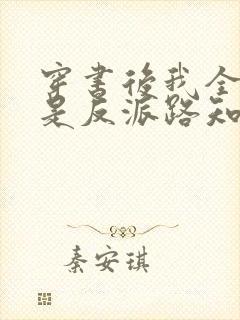 穿書後我全
是反派路知
秦安琪